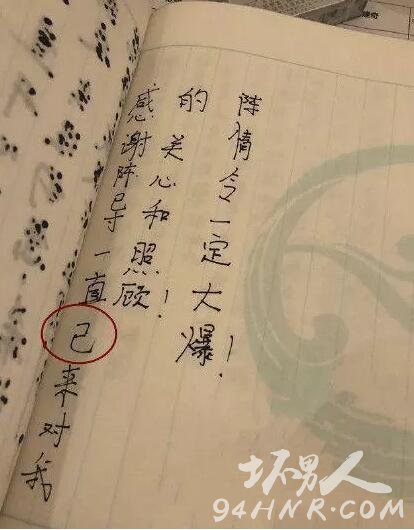 感谢陈导一直己来对我
的关心和照顾!
陈情令一定大爆!
坏男人
94HNR.COM